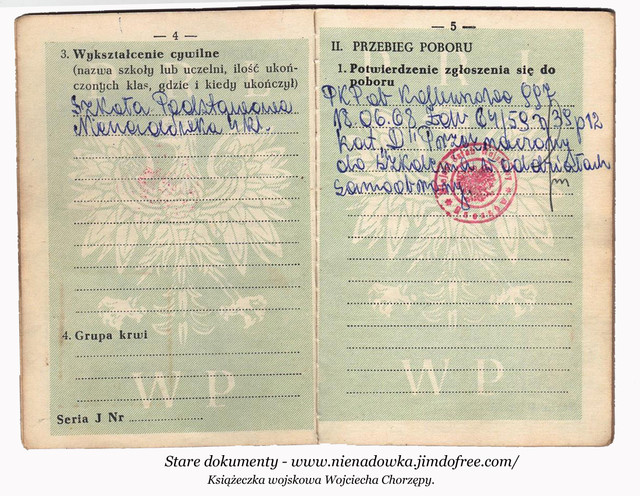 — 4 —
3. Wykształcenie cywilne
(nazwa szkoły lub uczelni, ilość ukoń-
czonych klas, gdzie i kiedy ukończył)
Szkoła Podstawowa
Nienadówka 4 kl.
4. Grupa krwi
W P
Seria J Nr
— 5 —
II. PRZEBIEG POBORU
1. Potwierdzenie zgłoszenia się do
poboru
PKP ob Kolbuszowa
18.06.68
Kat. "D"
do Szkolenia w oddziałach
Samoobrony.
W P
Stare dokumenty - www.nienadowka.jimdofree.com/
Książeczka wojskowa Wojciecha Chorzępy.